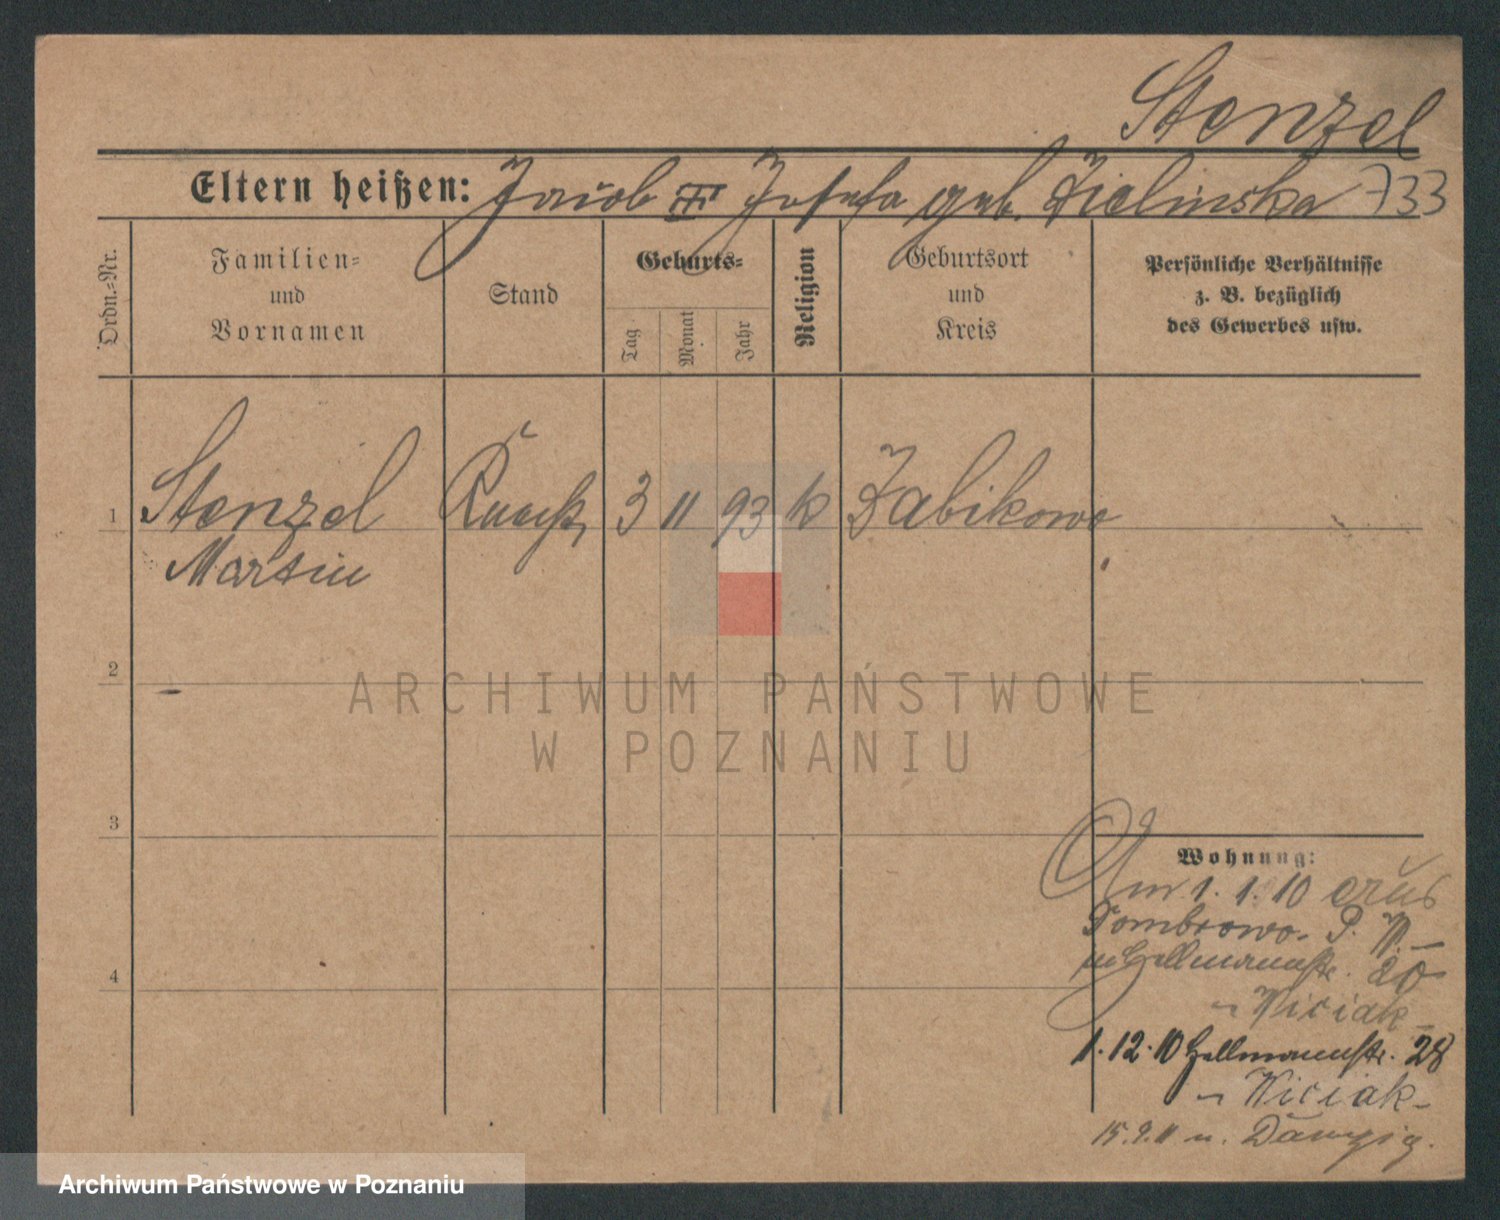 Stenzel
Eltern heißen: Jacob III Josefa geb. Zielinska 733
Ordn.-Nr.
Familien=
und
Vornamen
Stand
Geburts=
Tag
Monat
Jahr
Religion
Geburtsort
und
Kreis
Persönliche Verhältnisse
z. B. bezüglich
des Gewerbes usw.
1 Stenzel 3 11 93 k Zabikowo
Martin
2
3
4
Wohnung:
Am 1. 1. 10 aus
Dombrowo. P. W.
n Hellmannstr. 20
Wiciak
1. 12. 10 Hellmannstr. 28
Wiciak
15. 9. 11 n. Danzig.
ARCHIWUM PAŃSTWOWE
W POZNANIU
Archiwum Państwowe w Poznaniu